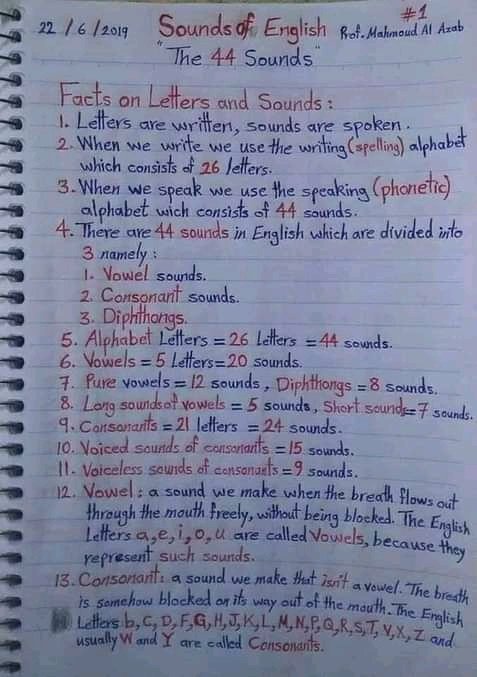 #1
22/6/2019 Sounds of English Rof. Mahmoud Al Azab
"The 44 Sounds"
Facts on Letters and Sounds:
1. Letters are written, sounds are spoken.
2. When we write we use the writing (spelling) alphabet
which consists of 26 letters.
3. When we speak we use the speaking (phonetic)
alphabet wich consists of 44 sounds.
4. There are 44 sounds in English which are divided into
3 namely:
1. Vowel sounds.
2. Consonant sounds.
3. Diphthongs.
5. Alphabet Letters = 26 Letters = 44 sounds.
6. Vowels = 5 Letters = 20 sounds.
7. Pure vowels = 12 sounds, Diphthongs = 8 sounds.
8. Long sounds of vowels = 5 sounds, Short sounds = 7 sounds.
9. Consonants = 21 letters = 24 sounds.
10. Voiced sounds of consonants = 15 sounds.
11. Voiceless sounds of consonants = 9 sounds.
12. Vowel: a sound we make when the breath flows out
through the mouth freely, without being blocked. The English
Letters a, e, i, o, u are called Vowels, because they
represent such sounds.
13. Consonant: a sound we make that isn't a vowel. The breath
is somehow blocked on its way out of the mouth. The English
Letters b, C, D, F, G, H, J, K, L, M, N, P, Q, R, S, T, V, X, Z and
usually W and Y are called Consonants.